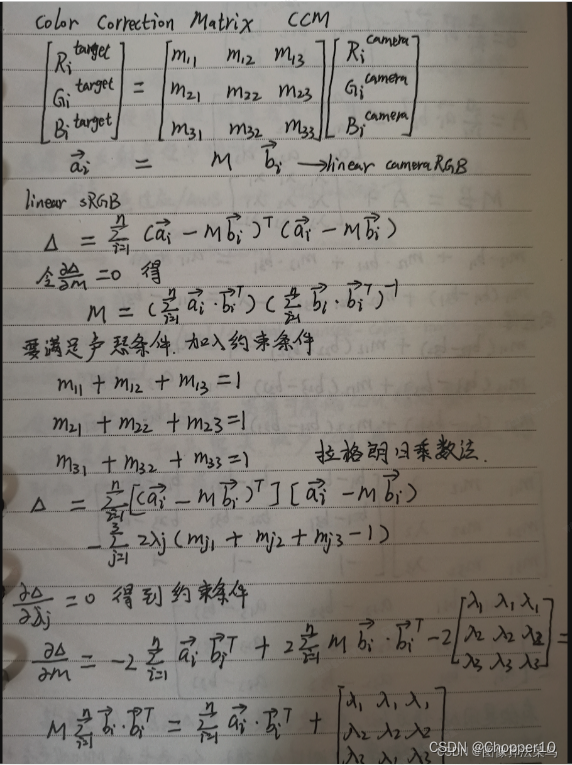 Color Correction Matrix CCM
[Ri^target Gi^target Bi^target] = [m11 m12 m13 m21 m22 m23 m31 m32 m33] [Ri^camera Gi^camera Bi^camera]
a⃗i = M b⃗i → linear camera RGB
linear sRGB
Δ = Σ_{i=1}^{n} (a⃗i - M b⃗i)^T (a⃗i - M b⃗i)
令 ∂Δ/∂m = 0 得
M = (Σ_{i=1}^{n} a⃗i · b⃗i^T) (Σ_{i=1}^{n} b⃗i · b⃗i^T)^-1
要满足 条件. 加入约束条件
m11 + m12 + m13 = 1
m21 + m22 + m23 = 1
m31 + m32 + m33 = 1 拉格朗日乘数法.
Δ = Σ_{i=1}^{n} [(a⃗i - M b⃗i)^T] [a⃗i - M b⃗i)
- Σ_{j=1}^{3} 2λj (mj1 + mj2 + mj3 - 1)
∂Δ/∂λj = 0 得到约束条件
∂Δ/∂m = -2 Σ_{i=1}^{n} a⃗i b⃗i^T + 2 Σ_{i=1}^{n} M b⃗i · b⃗i^T - 2 [λ1 λ1 λ1 λ2 λ2 λ2 λ3 λ3 λ3] =
M Σ_{i=1}^{n} b⃗i · b⃗i^T = Σ_{i=1}^{n} a⃗i · b⃗i^T + [λ1 λ1 λ1 λ2 λ2 λ2 λ3 λ3 λ3
CSDN @Chopper10